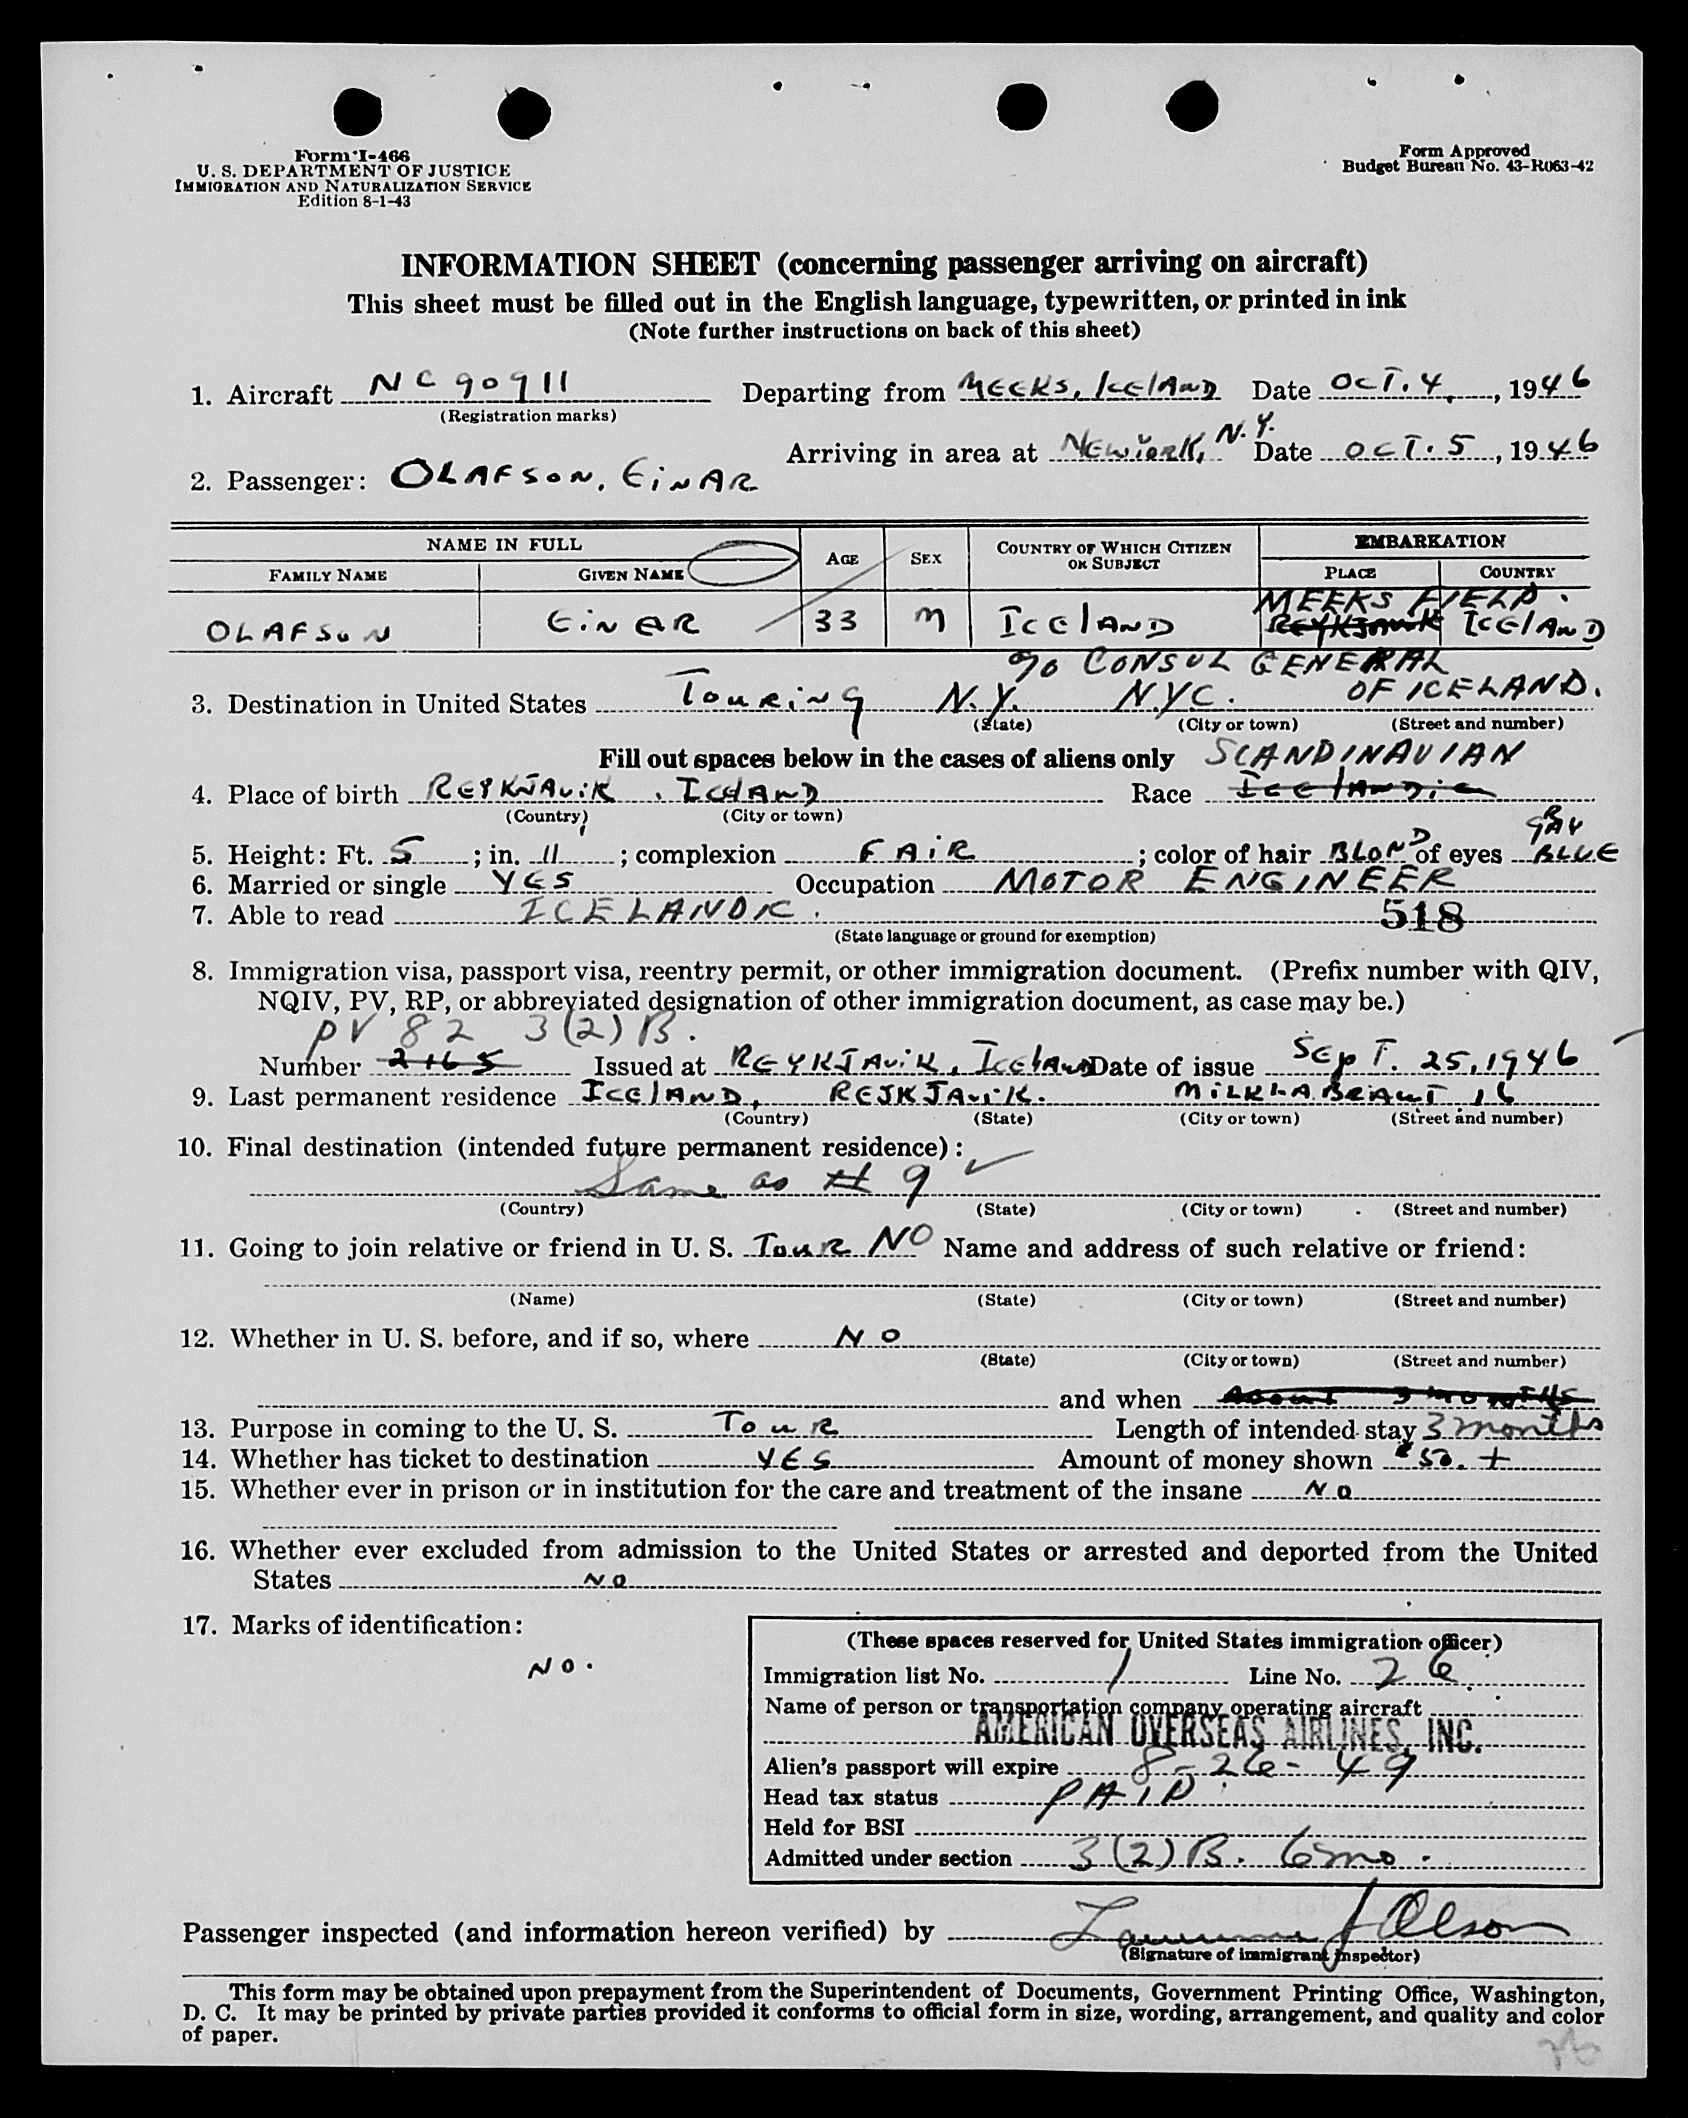 Form I-466
U. S. DEPARTMENT OF JUSTICE
IMMIGRATION AND NATURALIZATION SERVICE
Edition 8-1-43
Form Approved
Budget Bureau No. 43-R063-42
INFORMATION SHEET (concerning passenger arriving on aircraft)
This sheet must be filled out in the English language, typewritten, or printed in ink
(Note further instructions on back of this sheet)
1. Aircraft NC 90911 Departing from MEEKS, ICELAND Date OCT. 4, 1946
(Registration marks)
Arriving in area at NEW YORK, N.Y. Date OCT. 5, 1946
2. Passenger: OLAFSON, EINAR
NAME IN FULL AGE SEX COUNTRY OF WHICH CITIZEN OR SUBJECT EMBARKATION
FAMILY NAME GIVEN NAME PLACE COUNTRY
MEEKS FIELD.
OLAFSON EINAR 33 M ICELAND REYKJAVIK ICELAND
% CONSUL GENERAL
3. Destination in United States Touring N.Y. N.Y.C. OF ICELAND.
(State) (City or town) (Street and number)
Fill out spaces below in the cases of aliens only SCANDINAVIAN
4. Place of birth REYKJAVIK, ICELAND Race ICELANDIC
(Country) (City or town)
GRAY
5. Height: Ft. 5 ; in. 11 ; complexion FAIR ; color of hair BLOND of eyes BLUE
6. Married or single YES Occupation MOTOR ENGINEER
7. Able to read ICELANDIC. 518
(State language or ground for exemption)
8. Immigration visa, passport visa, reentry permit, or other immigration document. (Prefix number with QIV,
NQIV, PV, RP, or abbreviated designation of other immigration document, as case may be.)
PV 82 3(2)B.
Number 2165 Issued at REYKJAVIK, ICELAND Date of issue SEPT. 25, 1946
9. Last permanent residence ICELAND, REJKJAVIK. 16
(Country) (State) (City or town) (Street and number)
10. Final destination (intended future permanent residence):
Same as # 9
(Country) (State) (City or town) (Street and number)
11. Going to join relative or friend in U. S. TOUR NO Name and address of such relative or friend:
(Name) (State) (City or town) (Street and number)
12. Whether in U. S. before, and if so, where NO
(State) (City or town) (Street and number)
and when ABOUT 3 MONTHS
13. Purpose in coming to the U. S. TOUR Length of intended stay 3 months
14. Whether has ticket to destination YES Amount of money shown $50. +
15. Whether ever in prison or in institution for the care and treatment of the insane NO
16. Whether ever excluded from admission to the United States or arrested and deported from the United
States NO
17. Marks of identification:
NO.
(These spaces reserved for United States immigration officer)
Immigration list No. 1 Line No. 26
Name of person or transportation company operating aircraft
AMERICAN OVERSEAS AIRLINES, INC.
Alien's passport will expire 8-26-49
Head tax status PAID
Held for BSI
Admitted under section 3(2)B. 6 mo.
Passenger inspected (and information hereon verified) by Lawrence J Olson
(Signature of immigrant inspector)
This form may be obtained upon prepayment from the Superintendent of Documents, Government Printing Office, Washington,
D. C. It may be printed by private parties provided it conforms to official form in size, wording, arrangement, and quality and color
of paper.